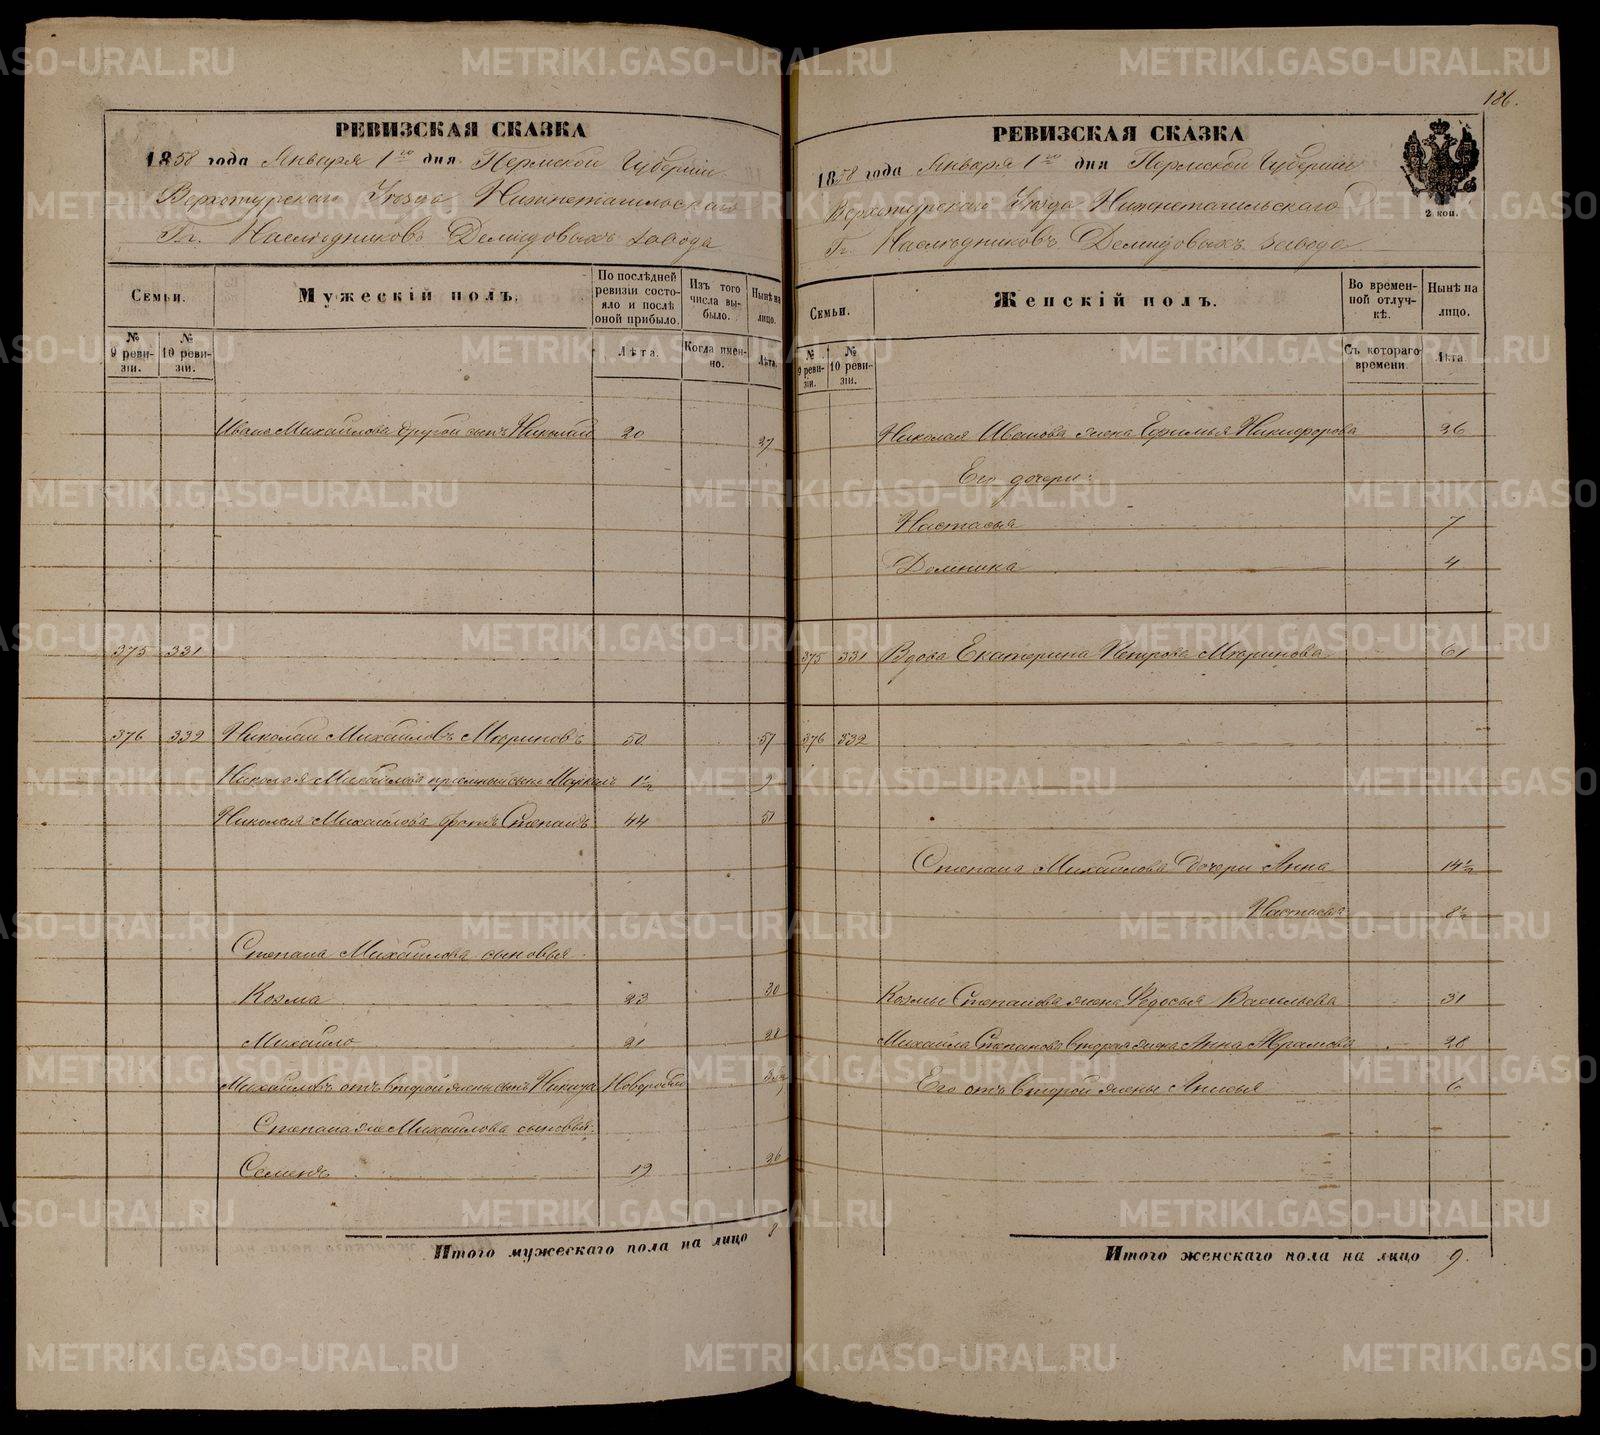 РЕВИЗСКАЯ СКАЗКА
1858 года Января 1го дня Пермской Губерніи
Верхотурскаго Уѣзда Нижнетагильскаго
Гг. Наслѣдниковъ Демидовыхъ завода
Семьи.
Мужескій полъ.
По послѣдней ревизіи состояло и послѣ оной прибыло.
Изъ того числа выбыло.
Нынѣ на лицо.
№ 9 ревизіи.
№ 10 ревизіи.
Лѣта.
Когда именно.
Лѣта.
Ивана Михайлова другой сынъ Николай 20 27
375 331
376 332 Николай Михайловъ Мюриновъ 50 57
Николая Михайлова пріемный сынъ 1½ 9
Николая Михайлова братъ Степанъ 44 51
Степана Михайлова сыновья
Козма 23 30
Михайло 21 28
Михайловъ отъ второй жены сынъ Никита
Степана же Михайлова сыновья:
Семенъ 19 26
Итого мужескаго пола на лицо 8
186.
РЕВИЗСКАЯ СКАЗКА
2 коп.
1858 года Января 1го дня Пермской Губерніи
Верхотурскаго Уѣзда Нижнетагильскаго
Гг. Наслѣдниковъ Демидовыхъ завода
Семьи.
Женскій полъ.
Во временной отлучкѣ.
Нынѣ на лицо.
№ 9 ревизіи.
№ 10 ревизіи.
Съ котораго времени.
Лѣта.
Николая Иванова жена Ефимья Никифорова 26
Его дочери:
Настасья 7
Домника 4
375 331 Вдова Екатерина Петрова Мюринова 61
376 332
Степана Михайлова дочери Анна 14½
Настасья 8½
Козмы Степанова жена Федосья Васильева 31
Михайла Степанова вторая жена Анна 28
Его отъ второй жены Анисья 6
Итого женскаго пола на лицо 9.
METRIKI.GASO-URAL.RU